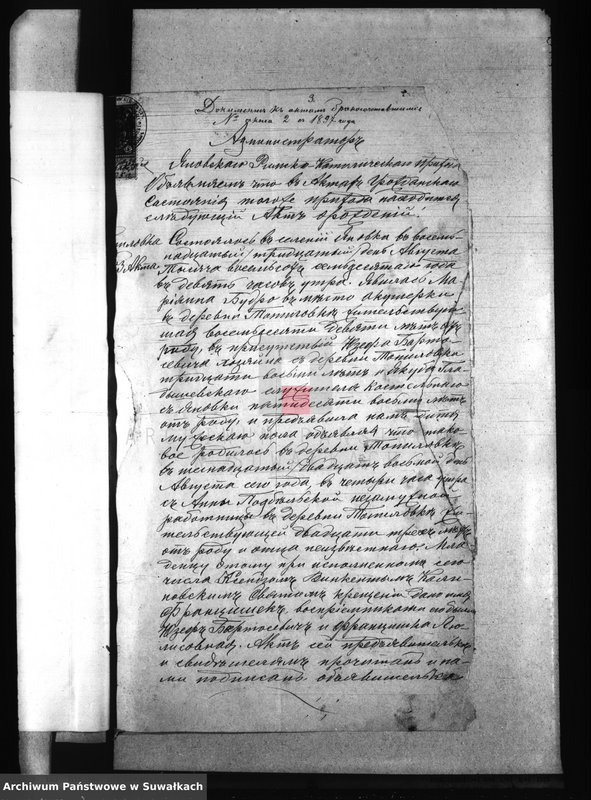 3.
Документъ къ актамъ бракосочетавшимся
№ 2 съ 1897 года
Администраторъ
Яновскаго Римско-Католическаго Прихода
Объявляемъ что въ Актахъ Гражданскаго
Состоянія тогоже прихода находится
слѣдующій Актъ рожденій:
Топиловка
Состоялось въ селеніи Яновка въ восем-
надцатый /тридцатый/ день Августа
Тысяча восемьсотъ семьдесятаго года
въ девять часовъ утра. Явилась Ма-
ріянна Будро вмѣсто акушерки
въ деревни Топиловкѣ жительствую-
щая восемьдесяти девяти лѣтъ отъ
роду, въ присутствіи Юзефа Барто-
севича хозяина съ деревни Топиловки
тридцати восьми лѣтъ и Якуба
служителя костельнаго
съ Яновки пятидесяти восьми лѣтъ
отъ роду, и предъявила намъ дитя
мужскаго пола объявляя что тако
вое родилось въ деревни Топиловкѣ
въ шестнадцатый /двадцать восьмой/ день
Августа сего года, въ четыри часа утра
съ Анны Подбѣльской незамужной
работницы въ деревни Топиловкѣ жи-
тельствующей двадцати трехъ лѣтъ
отъ роду и отца неизвѣстнаго. Мла-
денцу этому при исполненномъ сего
числа Ксендзомъ Викентымъ Кали-
новскимъ Святомъ крещеніи дано имя
Францишекъ, воспріемниками его были
Юзефъ Бартосевичъ и Францишка
Актъ сей предъявительницѣ
и свидѣтелямъ прочитанъ и на-
ми подписанъ объявительница
Archiwum Państwowe w Suwałkach